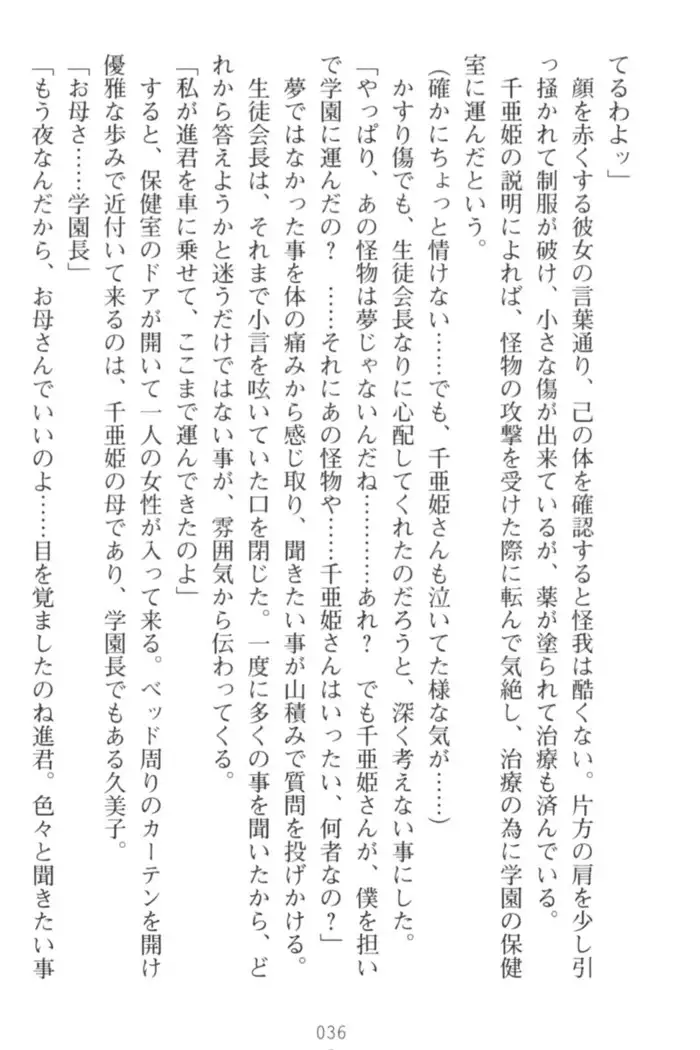 てるわよッ」
　顔を赤くする彼女の言葉通り、己の体を確認すると怪我は酷くない。片方の肩を少し引
っ掻かれて制服が破け、小さな傷が出来ているが、薬が塗られて治療も済んでいる。
　千亜姫の説明によれば、怪物の攻撃を受けた際に転んで気絶し、治療の為に学園の保健
室に運んだという。
（確かにちょっと情けない……でも、千亜姫さんも泣いてた様な気が……）
　かすり傷でも、生徒会長なりに心配してくれたのだろうと、深く考えない事にした。
「やっぱり、あの怪物は夢じゃないんだね…………あれ？　でも千亜姫さんが、僕を担い
で学園に運んだの？　……それにあの怪物や……千亜姫さんはいったい、何者なの？」
　夢ではなかった事を体の痛みから感じ取り、聞きたい事が山積みで質問を投げかける。
　生徒会長は、それまで小言を呟いていた口を閉じた。一度に多くの事を聞いたから、ど
れから答えようかと迷うだけではない事が、雰囲気から伝わってくる。
「私が進君を車に乗せて、ここまで運んできたのよ」
　すると、保健室のドアが開いて一人の女性が入って来る。ベッド周りのカーテンを開け
優雅な歩みで近付いて来るのは、千亜姫の母であり、学園長でもある久美子。
「お母さ……学園長」
「もう夜なんだから、お母さんでいいのよ……目を覚ましたのね進君。色々と聞きたい事
036